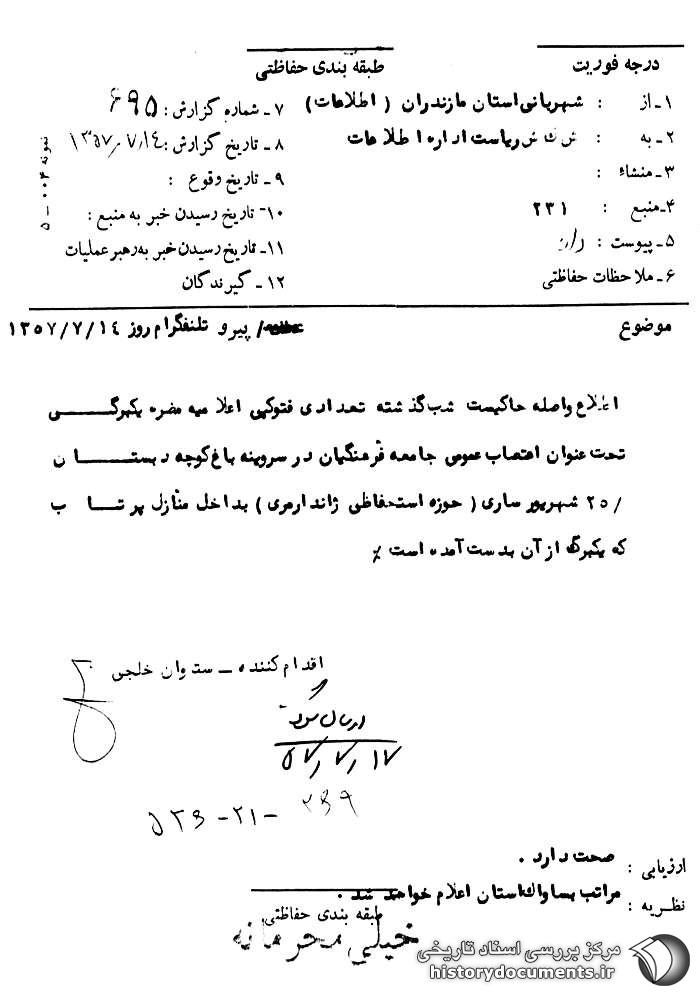 درجه فوریت
طبقه بندی حفاظتی
۱ـ از : شهربانی استان مازندران ( اطلاعات )
۲ـ به : ریاست اداره اطلاعات
۳ـ منشاء :
۴ـ منبع : ۲۳۱
۵ـ پیوست : دارد
۶ـ ملاحظات حفاظتی
۷ـ شماره گزارش : ۶۹۵
۸ـ تاریخ گزارش : ۱۳۵۷/۷/۱۴
۹ـ تاریخ وقوع :
۱۰ـ تاریخ رسیدن خبر به منبع :
۱۱ـ تاریخ رسیدن خبر به رهبر عملیات
۱۲ـ گیرندگان
نمونه ۰۰۴ ـ ۵
موضوع
/ پیرو تلنفگرام روز ۱۳۵۷/۷/۱۴
اطلاع واصله حاکیست شب گذشته تعدادی فتوکپی اعلامیه مضره یکبرگی
تحت عنوان اعتصاب عمومی جامعه فرهنگیان در سروینه باغ کوچه دبستان
۲۵/ شهریور ساری ( حوزه استحفاظی ژاندارمری ) بداخل منازل پرتاب
که یکبرگ از آن بدست آمده است ٪
اقدام کننده ـ ستوان خلجی
ارسال شود
۵۷/۷/۱۷
ارزیابی : صحت دارد .
نظریه : مراتب بساواک استان اعلام خواهد شد .
طبقه بندی حفاظتی
خیلی محرمانه
مرکز بررسی اسناد تاریخی
historydocuments.ir